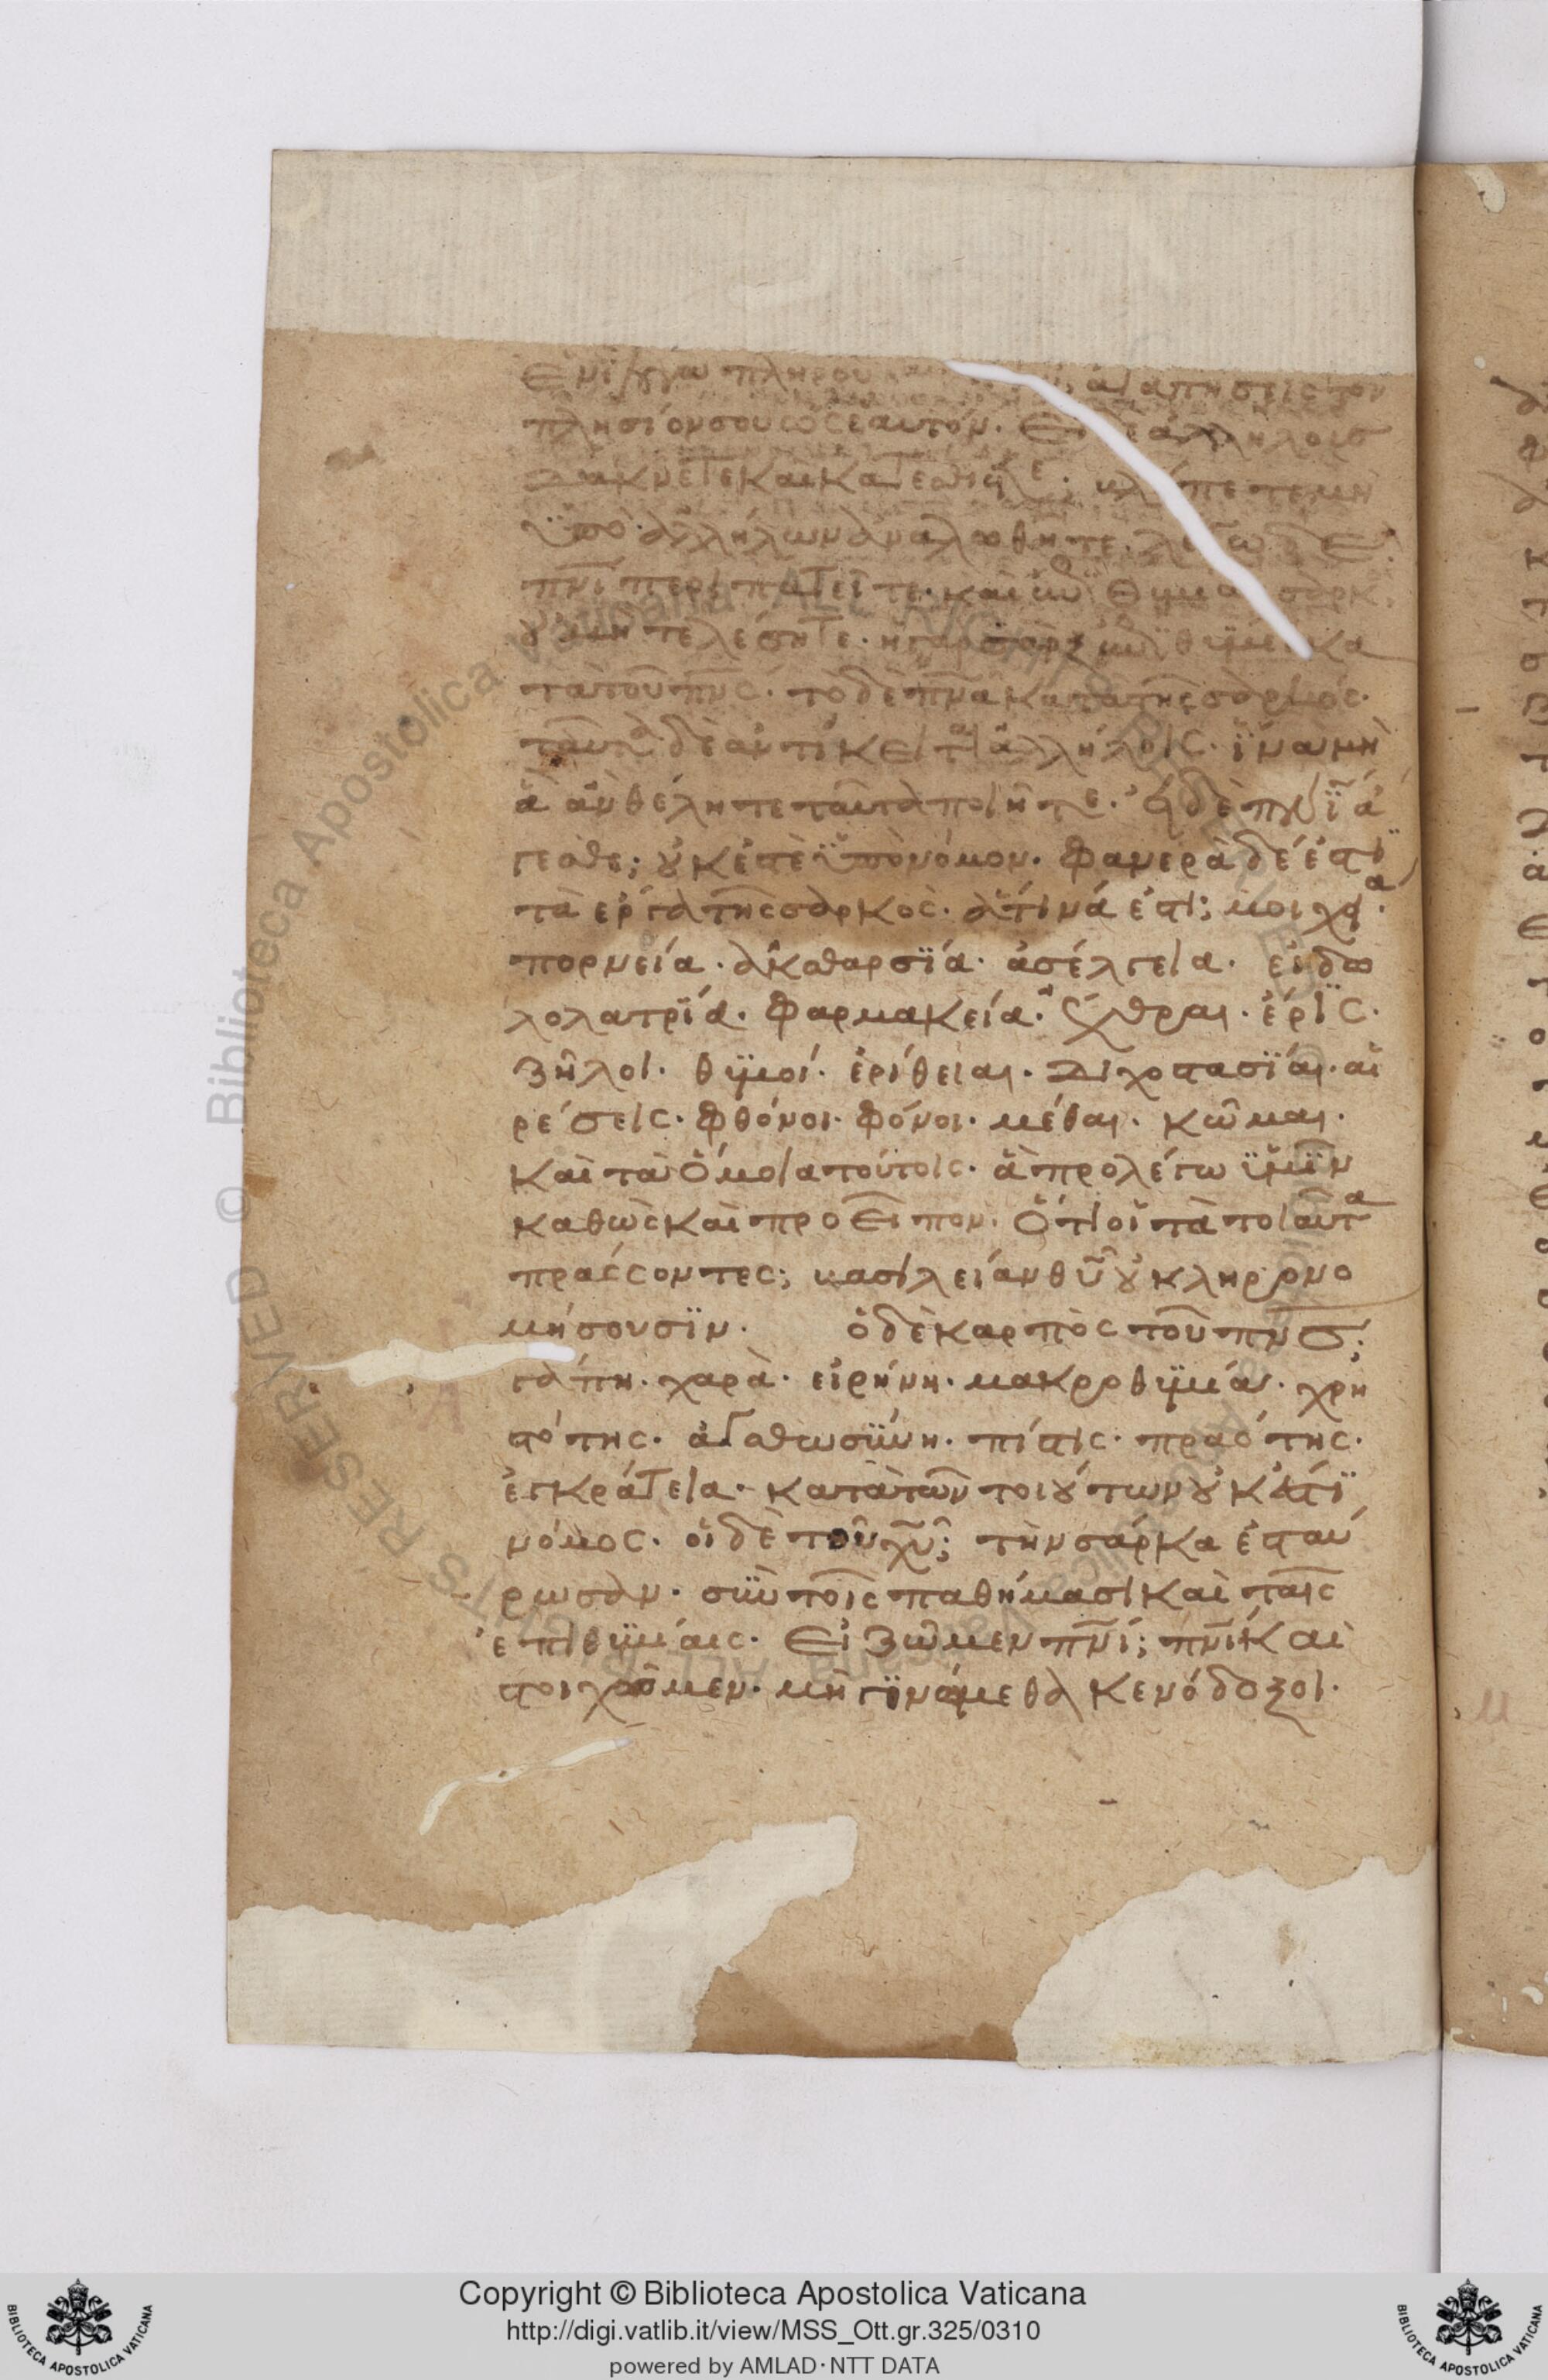 ἐνὶ λόγω πληρου ἀγαπήσεις τὸν
πλησίον σου ὡς ἑαυτόν· Εἰ ἀλλήλοις
δάκνετε καὶ κατεσθίετε· βλέπετε μὴ
ὑπὸ ἀλλήλων ἀναλωθῆτε· λέγω δὲ
πνι περιπατεῖτε· καὶ
οὐ μὴ τελέσητε· ἡ γαρ σὰρξ ἐπιθυμεῖ κα
τὰ τοῦ πνς· το δὲ πνα κατὰ τῆς σαρκός·
ταῦτα δὲ ἀντίκειται ἀλλήλοις· ἵνα μὴ
ἃ ἂν θέλητε ταῦτα ποιῆτε· εἰ δὲ πνι ἄ
γεσθε; οὐκ ἐστὲ ὑπὸ νόμον· Φανερὰ δέ ἐστϊ
τὰ ἔργα τῆς σαρκὸς· ἅτινά ἐστι; μοιχεία·
πορνεία· ἀκαθαρσϊά· ἀσέλγεια· εἰδω
λολατρϊά· Φαρμακεία· ἔχθραι· ἐρϊς·
ζῆλοι· θϋμοί· ἐρίθειαι· Διχοστασϊάι· αἱ
ρέσεις· φθόνοι· φόνοι· μέθαι· κῶμαι·
Καὶ τὰ ὅμοια τούτοις· ἃ προλέγω ϋμϊν
καθὼς καὶ προεῖπον· Ὅτι οἱ τὰ τοιαῦτα
πράσσοντες; βασιλείαν θῦ οὐ κληρονο
μήσουσϊν· ὁ δὲ καρπὸς τοῦ πνς;
γάπη· χαρὰ· εἰρήνη· μακροθϋμία· χρη
στότης· ἀγαθωσϋνη· πίστις· πραότης·
ἐγκράτεια· κατὰ τῶν τοιούτων οὐκ ἔστϊ
νόμος· οἱ δὲ τοῦ χυ; τὴν σάρκα ἐσταύ
ρωσαν· σϋν τοῖς παθήμασι Καὶ ταῖς
ἐπιθϋμίαις· Εἰ ζῶμεν πνι; πνι Καὶ
στοιχῶμεν· μὴ γϊνώμεθα κενόδοξοι·
© Biblioteca Apostolica Vaticana ALL RIGHTS RESERVED
Copyright © Biblioteca Apostolica Vaticana
http://digi.vatlib.it/view/MSS_Ott.gr.325/0310
powered by AMLAD·NTT DATA
BIBLIOTECA APOSTOLICA VATICANA
BIBLIOTECA APOSTOLICA VATICANA